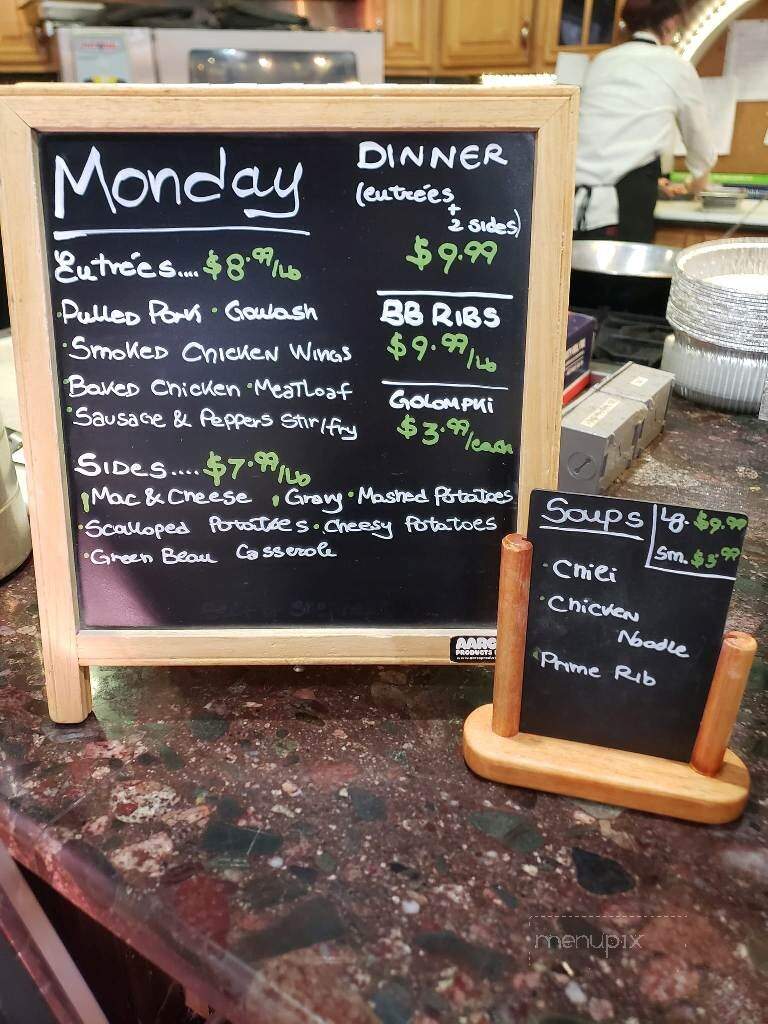 Monday
Entrées.... $8.99/lb
· Pulled Pork · Goulash
· Smoked Chicken Wings
· Baked Chicken · Meatloaf
· Sausage & Peppers Stir/fry
Sides.... $7.99/lb
· Mac & Cheese · Gravy · Mashed Potatoes
· Scalloped Potatoes · Cheesy Potatoes
· Green Bean Casserole
DINNER
(entrées
+
2 sides)
$9.99
BB RIBS
$9.99/lb
GOLOMPKI
$3.99/each
AARCO
PRODUCTS
Soups
Lg. $9.99
Sm. $5.99
· Chili
· Chicken
Noodle
· Prime Rib
menupix